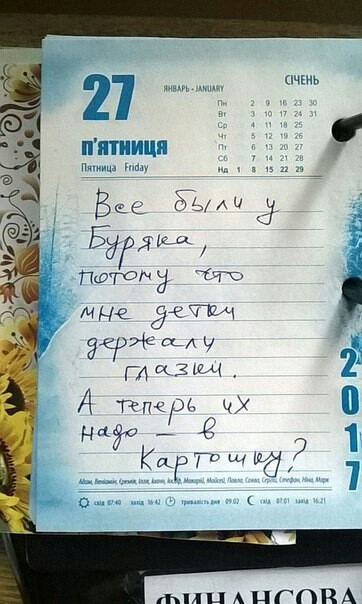 27
ЯНВАРЬ • JANUARY
СІЧЕНЬ
Пн 2 9 16 23 30
Вт 3 10 17 24 31
Ср 4 11 18 25
Чт 5 12 19 26
Пт 6 13 20 27
Сб 7 14 21 28
Нд 1 8 15 22 29
п'ятниця
Пятница Friday
Все были у
Буряка,
потому что
мне детки
держали
глазки.
А теперь их
надо – в
Картошку?
2017
Адам, Веніамін, Єремія, Ілля, Іоанн, Іосиф, Макарій, Мойсей, Павло, Савва, Сергій, Стефан, Ніна, Марк
схід 07:40 захід 16:42 тривалість дня 09:02 схід 07:01 захід 16:21
ФІНАНСОВА